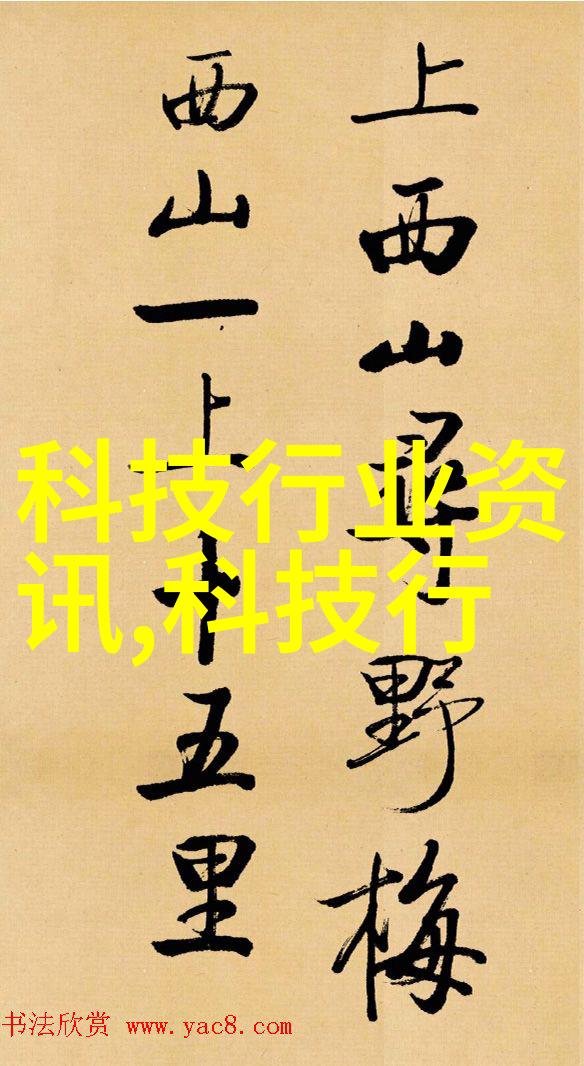 上西山尋野梅
西山一上十五里
科技行业资
讯,科技行
书法欣赏 www.yac8.com